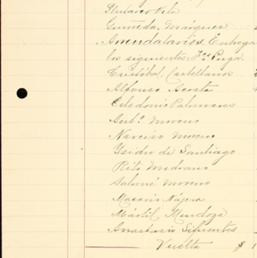 Gumeda, Marquez
Amendalarios. Entrega
los siguientes, Fco. Puga
Cristóbal Castellanos
Alfonso Acosta
Celedonio Palomares
Gerbo. Moreno
Narciso Moreno
Ysidro de Santiago
Rito Medrano
Salomé Moreno
Macario Nájera
Mártil Mendoza
Anastacio Sifuentes
Vuelta $ 1